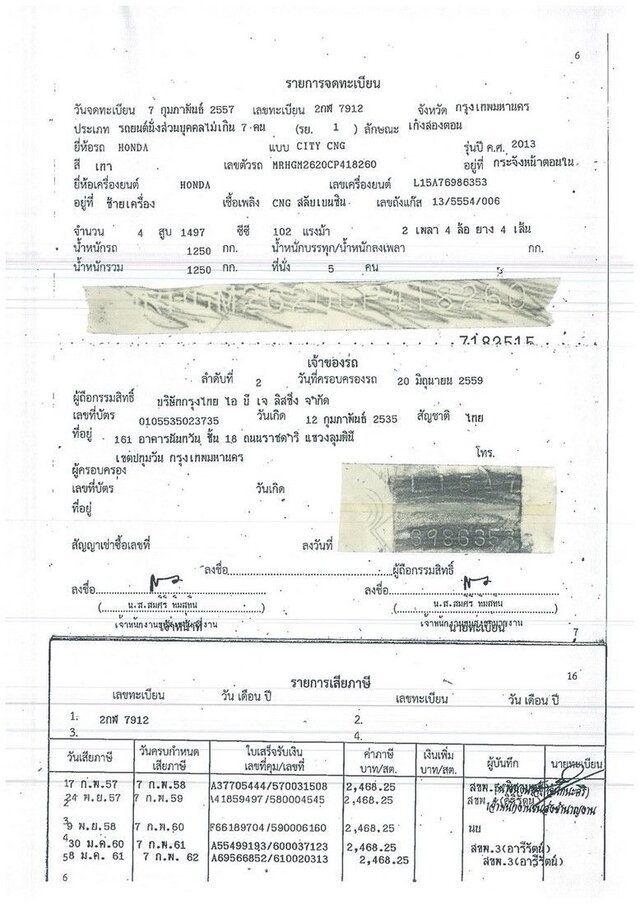 6
รายการจดทะเบียน
วันจดทะเบียน 7 กุมภาพันธ์ 2557 เลขทะเบียน 2กฬ 7912 จังหวัด กรุงเทพมหานคร
ประเภท รถยนต์นั่งส่วนบุคคลไม่เกิน 7 คน (รย. 1 ) ลักษณะ เก๋งสองตอน
ยี่ห้อรถ HONDA แบบ CITY CNG รุ่นปี ค.ศ. 2013
สี เทา เลขตัวรถ MRHGM2620CP418260 อยู่ที่ กระจังหน้าตอนใน
ยี่ห้อเครื่องยนต์ HONDA เลขเครื่องยนต์ L15A76986353
อยู่ที่ ซ้ายเครื่อง เชื้อเพลิง CNG สลับเบนซิน เลขถังแก๊ส 13/5554/006
จำนวน 4 สูบ 1497 ซีซี 102 แรงม้า 2 เพลา 4 ล้อ ยาง 4 เส้น
น้ำหนักรถ 1250 กก. น้ำหนักบรรทุก/น้ำหนักลงเพลา กก.
น้ำหนักรวม 1250 กก. ที่นั่ง 5 คน
MRHGM2620CP418260
7182515
เจ้าของรถ
ลำดับที่ 2 วันที่ครอบครองรถ 20 มิถุนายน 2559
ผู้ถือกรรมสิทธิ์ บริษัทกรุงไทย ไอ บี เจ ลิสซิ่ง จำกัด
เลขที่บัตร 0105535023735 วันเกิด 12 กุมภาพันธ์ 2535 สัญชาติ ไทย
ที่อยู่ 161 อาคารนันทวัน ชั้น 18 ถนนราชดำริ แขวงลุมพินี
เขตปทุมวัน กรุงเทพมหานคร โทร.
ผู้ครอบครอง
เลขที่บัตร วันเกิด
ที่อยู่
L15A7
6986353
สัญญาเช่าซื้อเลขที่ ลงวันที่
ลงชื่อ ผู้ถือกรรมสิทธิ์
ลงชื่อ ลงชื่อ
( น.ส.สมศิริ ) ( น.ส.สมศิริ )
เจ้าหน้าที่ นายทะเบียน
7
16
รายการเสียภาษี
เลขทะเบียน วัน เดือน ปี เลขทะเบียน วัน เดือน ปี
1. 2กฬ 7912 2.
3. 4.
วันเสียภาษี วันครบกำหนดเสียภาษี ใบเสร็จรับเงิน เลขที่คุม/เลขที่ ค่าภาษี บาท/สต. เงินเพิ่ม บาท/สต. ผู้บันทึก นายทะเบียน
17 ก.พ.57 7 ก.พ.58 A37705444/570031508 2,468.25 สขพ.
24 พ.ย.57 7 ก.พ.59 A41859497/580004545 2,468.25 สขพ.
2
เจ้าพนักงานขนส่งชำนาญงาน
3
9 พ.ย.58 7 ก.พ.60 F66189704/590006160 2,468.25 นย
4
30 ม.ค.60 7 ก.พ.61 A55499193/600037123 2,468.25 สขพ.3(อารีรัตน์)
5 8 ม.ค. 61 7 ก.พ. 62 A69566852/610020313 2,468.25 สขพ.3(อารีรัตน์)
6